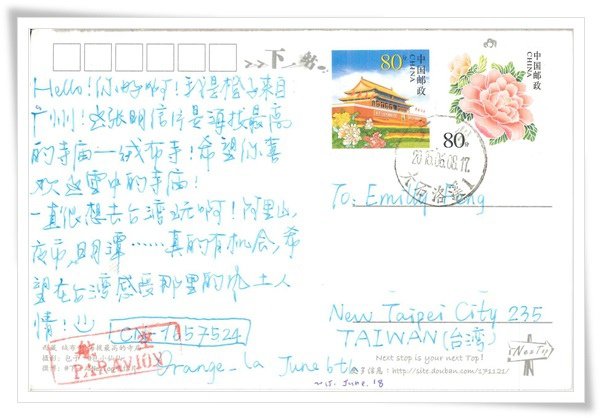 下一站
Hello!你好啊!我是橙子来自
广州!这张明信片是海拔最高
的寺庙—绒布寺!希望你喜
欢这雪中的寺庙!
一直很想去台湾玩啊!阿里山,
夜市,日月潭……真的有机会,希
望在台湾感受那里的风土人
情!
CN-1657524
Orange-la June 6th
PAR AVION
80分
中国邮政
CHINA
中国邮政
CHINA
80分
2016.06.08.17
To: Emily
New Taipei City 235
TAIWAN (台湾)
Next
Next stop is your next Top!
http://site.douban.com/271121/
June. 18